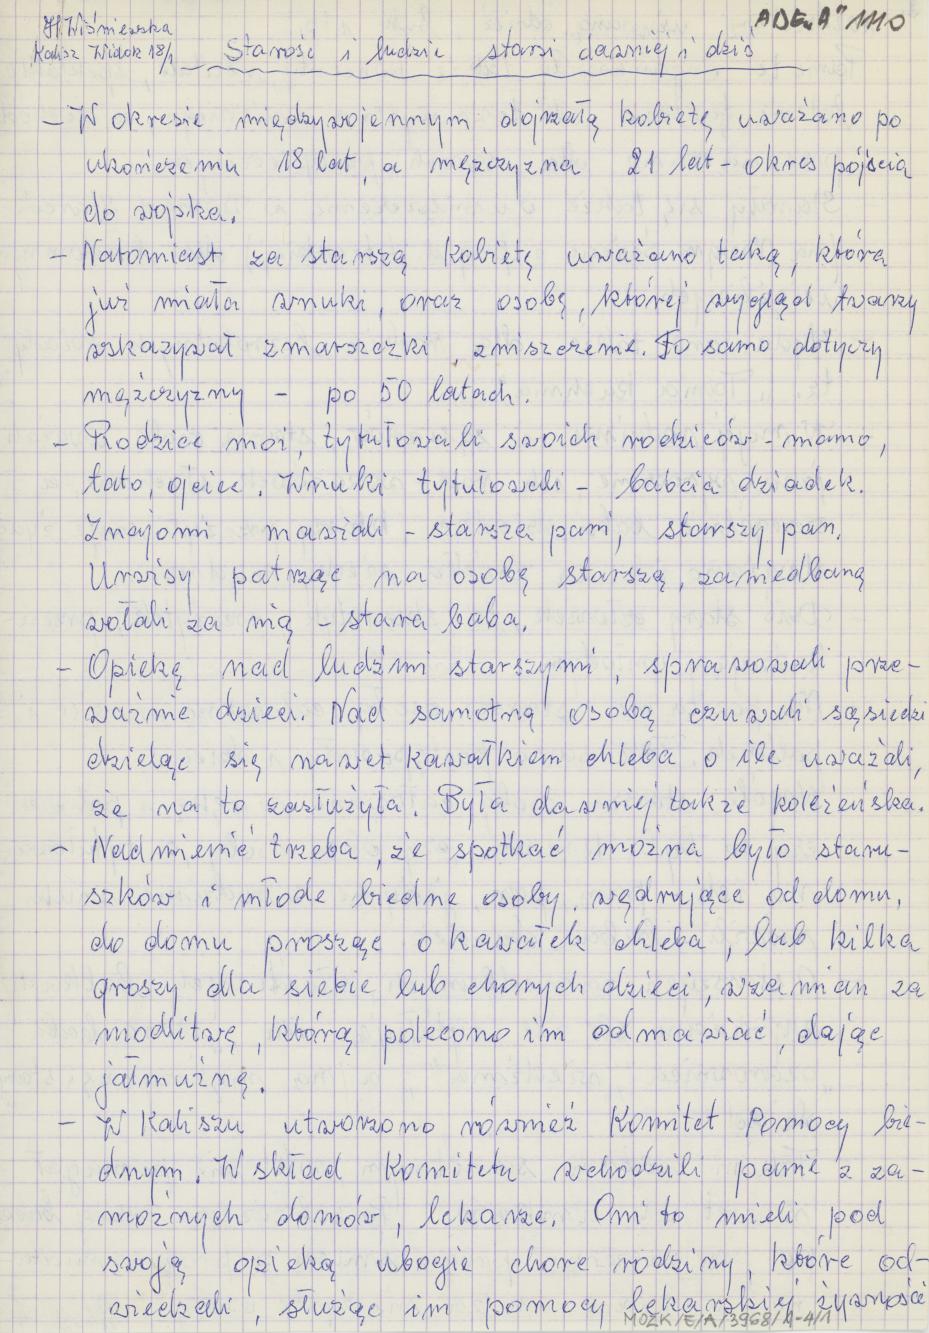 H. Wiśniewska
Kalisz Widok 18/1
ADE "A" 1110
Starość i ludzie starsi dawniej i dziś
– W okresie międzywojennym dojrzałą kobietę uważano po
ukończeniu 18 lat, a mężczyzna 21 lat – okres pójścia
do wojska.
– Natomiast za starszą kobietę uważano taką, która
już miała wnuki, oraz osobę, której wygląd twarzy
wskazywał zmarszczki, zniszczenie. To samo dotyczy
mężczyzny – po 50 latach.
– Rodzice moi, tytułowali swoich rodziców – mamo,
tato, ojciec. Wnuki tytułowali – babcia dziadek.
Znajomi mawiali – starsza pani, starszy pan.
Urwisy patrząc na osobę starszą, zaniedbaną
wołali za nią – stara baba.
– Opiekę nad ludźmi starszymi, sprawowali prze-
ważnie dzieci. Nad samotną osobą czuwali sąsiedzi
dzieląc się nawet kawałkiem chleba o ile uważali,
że na to zasłużyła. Była dawniej także koleżeńska.
– Nadmienić trzeba, że spotkać można było staru-
szków i młode biedne osoby, wędrujące od domu,
do domu prosząc o kawałek chleba, lub kilka
groszy dla siebie lub chorych dzieci, wzamian za
modlitwę, którą polecono im odmawiać, dając
jałmużnę.
– W Kaliszu utworzono również Komitet Pomocy bie-
dnym. W skład Komitetu wchodzili panie z za-
możnych domów, lekarze. Oni to mieli pod
swoją opieką ubogie chore rodziny, które od-
wiedzali, służąc im pomocy lekarskiej, żywność
MOZK/E/A/3968/A-4/1